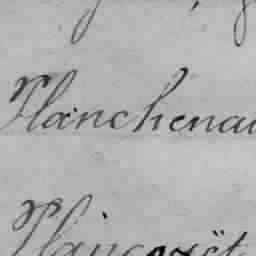 Planchenau
Plancoët